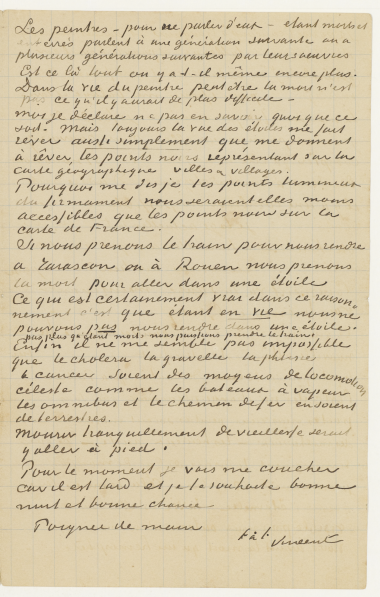 Les peintres – pour ne parler d'eux – étant morts et
enterrés parlent à une génération suivante ou à
plusieurs générations suivantes par leurs œuvres
Est ce là tout ou y a t-il même encore plus.
Dans la vie du peintre peut être la mort n'est
pas ce qu'il y aurait de plus difficile –
moi je déclare ne pas en savoir quoi que ce
soit. Mais toujours la vue des étoiles me fait
rêver aussi simplement que me donnent
à rêver, les points noirs représentant sur la
carte géographique villes & villages.
Pourquoi me dis je les points lumineux
du firmament nous seraient elles moins
accessibles que les points noirs sur la
carte de France.
Si nous prenons le train pour nous rendre
à Tarascon ou à Rouen nous prenons
la mort pour aller dans une étoile
Ce qui est certainement vrai dans ce raison-
nement c'est que étant en vie nous ne
pouvons pas nous rendre dans une étoile.
pas plus qu'étant morts nous puissions prendre le train.
Enfin il ne me semble pas impossible
que le choléra la gravelle la phtisie
& cancer soient des moyens de locomotion
céleste comme les bateaux à vapeur
les omnibus et le chemin de fer en soient
de terrestres.
mourir tranquillement de vieillesse serait
y aller à pied.
Pour le moment je vais me coucher
car il est tard et je te souhaite bonne
nuit et bonne chance
Poignée de main
t. à t.
Vincent